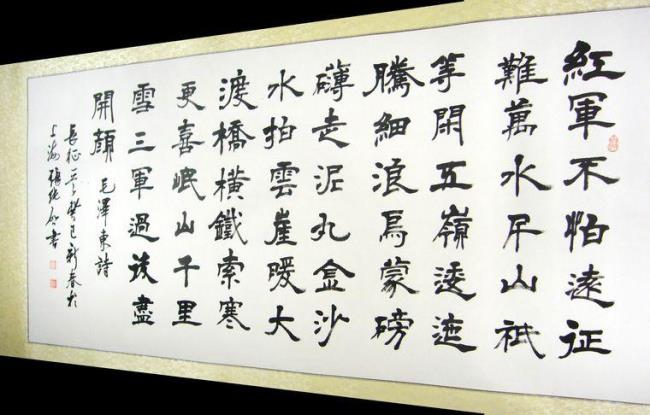 紅軍不怕遠征
難萬水千山祇
等閑五嶺逶迤
騰細浪烏蒙磅
礴走泥丸金沙
水拍雲崖暖大
渡橋橫鐵索寒
更喜岷山千里
雪三軍過後盡
開顏 毛澤東詩
長征 癸巳新春於
上海 書